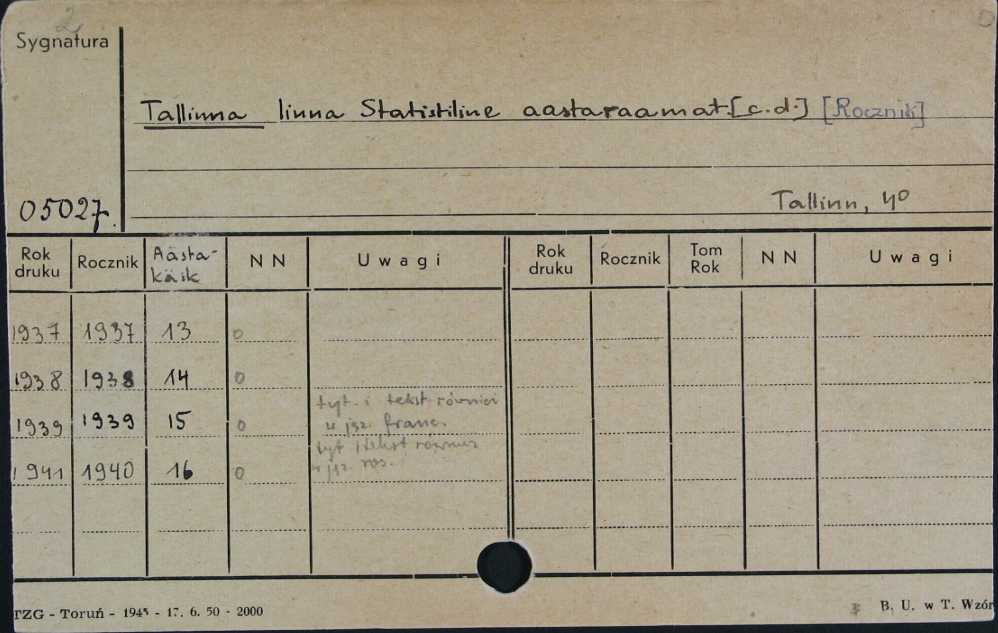 2
Sygnatura
Tallinna linna Statistiline aastaraamat. [c.d.] [Rocznik]
05027.
Tallinn, 4º
Rok druku Rocznik Aasta-käik N N Uwagi Rok druku Rocznik Tom Rok N N Uwagi
1937 1937 13 0
1938 1938 14 0
tyt. i tekst również
1939 1939 15 0 w jęz. franc.
tyt i tekst również
1941 1940 16 0 w jęz. ros.
TZG - Toruń - 1945 - 17. 6. 50 - 2000
B. U. w T. Wzór